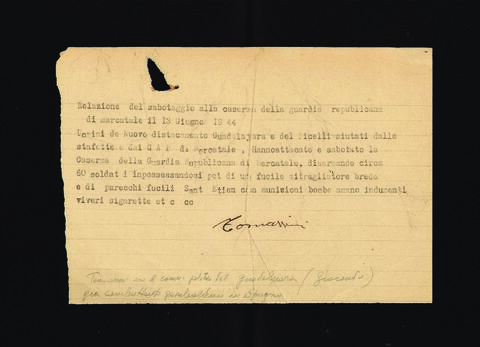 Relazione del sabotaggio alla caserma della guardia republicana
di mercatale il 13 Giugno 1944
Uomini de Nuovo distacamento Guadalajara e del Picelli aiutati dalle
stafette e dai G A P da Mercatale, Hannoattacato e sabotato la
Caserma della Guardia Republicana di Mercatale, disarmando circa
60 soldat i impossessandosi poi di un fucile mitragliatore breda
e di parecchi fucili Sant Etien con munizioni bombe amano indumenti
viveri sigarette et c cc
Tomassini
il com. polit. del Guadalajara (Giocondo)
già combattente in Spagna